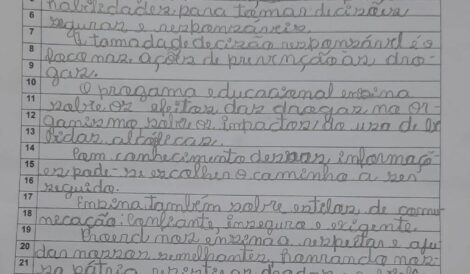 habilidades para tomar decisões
6 seguras e responsáveis.
7 A tomada de decisão responsável é o
8 foco nas ações de prevenção as dro-
9 gas.
10 O progama educacional ensina
11 sobre os efeitos das drogas no or-
12 ganismo sobre os impactos do uso de be
13 bidas alcólicas.
14 Com conhecimento dessas informaçõ-
15 es pode-se escolher o caminho a ser
16 seguido.
17 Ensina também sobre estilos de comu
18 nicação: Confiante, inseguro e exigente.
19 Proerd nos ensina a respeitar e aju
20 dar nossos semelhantes, honrando nos-
21 sa pátria